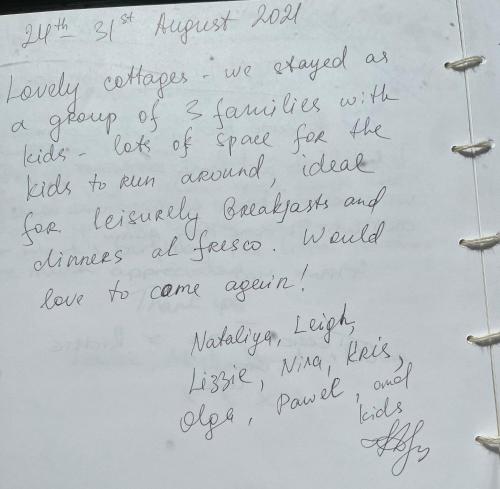 24th - 31st August 2021
Lovely cottages - we stayed as
a group of 3 families with
kids - lots of space for the
kids to run around, ideal
for leisurely breakfasts and
dinners al fresco. Would
love to come again!
Nataliya, Leigh,
Lizzie, Nina, Kris,
Olga, Pawel, and
kids